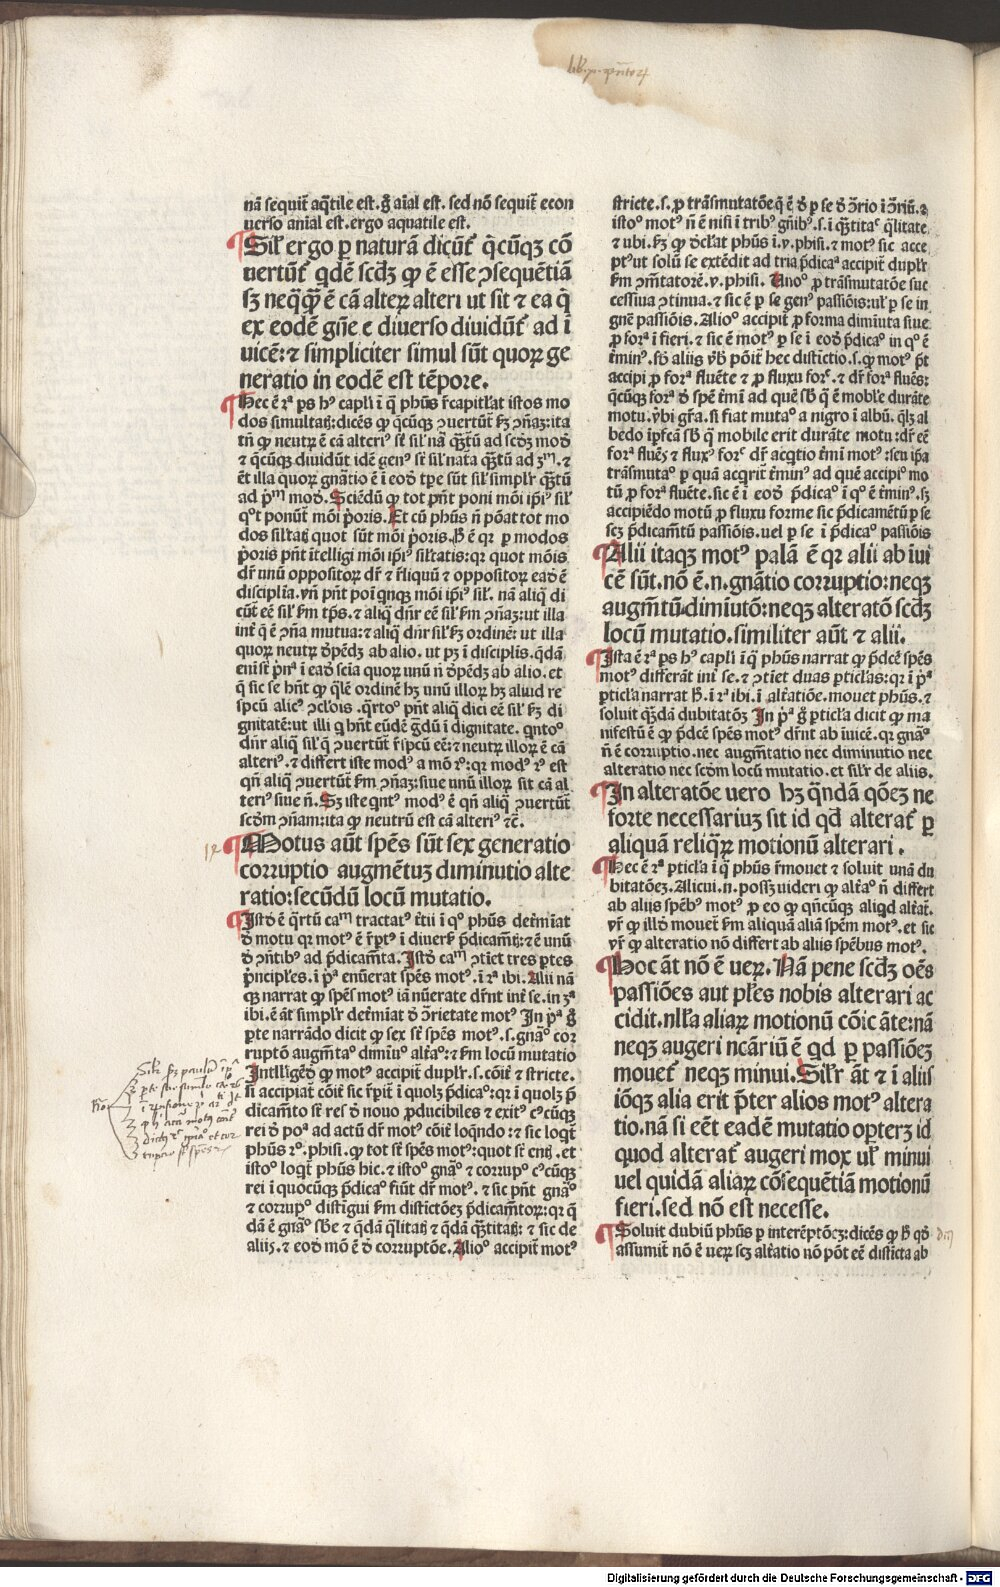 nā sequit̄ aq̄tile est. g̊ aīal est. sed nō sequit̄ econ
uerso anīal est. ergo aquatile est.
Sil̄ ergo p naturā dicūt̄ q̄cūqꝫ cō
uertūt̄ qdē scdꝫ ꝙ ē esse ꝯsequētiā
sꝫ neqq̄ꝫ ē cā alteꝝ alteri ut sit ⁊ ea q̄
ex eodē gn̄e e diuerso diuidūt̄ ad ī
uicē: ⁊ simpliciter simul sūt quoꝝ ge
neratio in eodē est tēpore.
Hec ē 2ᵃ ps hꝰ capl̄i ī q̄ phūs r̄capitl̄at istos mo
dos simultatꝭ: dicēs ꝙ q̄cūqꝫ ꝯuertūt̄ ẜꝫ ꝯn̄aꝫ: ita
tn̄ ꝙ neutꝝ ē cā alteriꝰ st̄ sil̄ nā q̄ꝫtū ad scdꝫ modū
⁊ q̄cūqꝫ diuidūt idē genꝰ st̄ sil̄ nat̄a q̄ꝫtū ad 3ᵐ. ⁊
ēt illa quoꝝ gn̄atio ē ī eod̄ tp̄e sūt sil̄ simplr̄ q̄ꝫtū
ad p̄ᵐ mod̄. Sciēdū ꝙ tot pn̄t poni mōi ip̄iꝰ sil̄
qᵒt ponūt̄ mōi p̄oris. Et cū phūs n̄ pōat tot mo
dos sil̄tatꝭ quot sūt mōi p̄oris. ꝗ ē qꝛ p modos
p̄oris pn̄t īt̄elligi mōi ip̄iꝰ sil̄tatis: qꝛ quot mōis
dr̄ unū oppositoꝝ dr̄ ⁊ r̄liquū ⁊ oppositoꝝ ead̄ ē
disciplīa. vn̄ pn̄t poī qnqꝫ mōi ip̄iꝰ sil̄. nā aliq̄ di
cūt̄ eē sil̄ ẜm tp̄s. ⁊ aliq̄ dn̄r eē sil̄ ẜm ꝯn̄aꝫ: ut illa
int̄ q̄ ē ꝯn̄a mutua: ⁊ aliq̄ dn̄r sil̄ ẜꝫ ordinē: ut illa
quoꝝ neutꝝ d̄pēdꝫ ab alio. ut pꝫ ī disciplīs. q̄dā
enī st̄ p̄riᵃ ī ead̄ scīa quoꝝ unū n̄ d̄pēdꝫ ab alio. et
q̄ sic se hn̄t ꝙ q̄lē ordinē hꝫ unū illoꝝ hꝫ aliud re
spcū alicꝰ ꝯcl̄ois. q̄rtoᵒ pn̄t aliq̄ dici eē sil̄ ẜꝫ di
gnitatē: ut illi q̄ hn̄t eūdē g̊dū ī dignitate. qntoᵒ
dn̄r aliq̄ sil̄ q̄ ꝯuertūt̄ r̄spcū eē: ⁊ neutꝝ illoꝝ ē cā
alteriꝰ. ⁊ differt iste modꝰ a mō 2ᵒ: qꝛ modꝰ 2ᵒ est
qn̄ aliq̄ ꝯuertūt̄ ẜm ꝯn̄aꝫ: siue unū illoꝝ sit cā al
teriꝰ siue n̄. Sꝫ iste qntꝰ modꝰ ē qn̄ aliq̄ ꝯuertūt̄
scdm ꝯn̄am: ita ꝙ neutrū est cā alteriꝰ ⁊c̄.
12
Motus aūt spēs sūt sex generatio
corruptio augmētuꝫ diminutio alte
ratio: secūdū locū mutatio.
Istd̄ ē q̄rtū caᵐ tractatꝰ t̄tii ī qᵒ phūs det̄mīat
d̄ motu qꝛ motꝰ ē r̄ptꝰ ī diuerẜ p̄dicamt̄ꝭ: ⁊ ē unū
d̄ ꝯn̄tibꝰ ad p̄dicam̄ta. Istd̄ caᵐ ꝯtiet tres ptes
p̄nciples. ī pᵃ enūerat spēs motꝰ. ī 2ᵃ ibi. Alii nā
qꝫ narrat ꝙ spēs motꝰ iā nūerate dr̄nt int̄ se. in 3ᵃ
ibi. ē āt simplr̄ det̄mīat d̄ ꝯrietate motꝰ In pᵃ g̊
pte narrādo dicit ꝙ sex st̄ spēs motꝰ. s. gn̄aᵒ cor
ruptō augm̄taᵒ dimīuᵒ alt̄aᵒ: ⁊ ẜm locū mutatio
Intll̄igēd̄ ꝙ motꝰ accipit̄ duplr̄. s. cōit̄ ⁊ stricte.
si accipiat̄ cōit̄ sic r̄pit̄ ī quolꝫ p̄dicaᵒ: qꝛ ī quolꝫ p̄
dicam̄to st̄ res d̄ nouo ꝓducibiles ⁊ exitꝰ cꝰcūqꝫ
rei d̄ poᵃ ad actū dr̄ motꝰ cōit̄ loqn̄do: ⁊ sic loqt̄
phūs 2ᵒ. phisi. ꝙ tot st̄ spēs motꝰ: quot st̄ entꝭ. et
istoᵒ loqt̄ phūs hic. ⁊ istoᵒ gn̄aᵒ ⁊ corrupᵒ cꝰcūqꝫ
rei ī quocūqꝫ p̄dicaᵒ fiūt dr̄ motꝰ. ⁊ sic pn̄t gn̄aᵒ
⁊ corrupᵒ distīgui ẜm distictōeꝫ p̄dicam̄toꝝ: qꝛ q̄
dā ē gn̄aᵒ sb̄e ⁊ q̄dā q̄litatꝭ ⁊ q̄dā q̄ꝫtitatꝭ: ⁊ sic de
aliis. ⁊ eod̄ mō ē d̄ corruptōe. Alioᵒ accipit̄ motꝰ
stricte. s. ꝓ trāsmutatōe q̄ ē d̄ p se d̄ ꝯrio ī ꝯriū. ⁊
istoᵒ motꝰ n̄ ē nisi ī tribꝰ gn̄ibꝰ. s. ī q̄ꝫtitaᵉ q̄litate
⁊ ubi. ẜꝫ ꝙ d̄cl̄at phūs ī. v. phisi. ⁊ motꝰ sic acce
ptꝰ ut solū se extēdit ad tria p̄dicaᵃ accipit̄ duplr̄
ẜm ꝯm̄tatorē. v. phisi. Unoᵒ ꝓ trāsmutatōe suc
cessiua ꝯtinua. ⁊ sic ē p se genꝰ passiōis: ul̄ p se in
gn̄e passiōis. Alioᵒ accipit̄ ꝓ forma dimīuta siue
ꝓ forᵃ ī fieri. ⁊ sic ē motꝰ p se ī eod̄ p̄dicaᵒ in qᵒ ē
t̄minꝰ. ẜꝫ aliis v̄b̄ pōit̄ hec distīctio. s. ꝙ motꝰ pt̄
accipi ꝓ forᵃ fluēte ⁊ ꝓ fluxu forᵉ. ⁊ dr̄ forᵃ fluēs:
q̄cūqꝫ forᵃ d̄ spē t̄mī ad quē sb̄ q̄ ē mobl̄e durāte
motu. v̄bi gr̄a. si fiat mutaᵒ a nigro ī albū. q̄lꝫ al
bedo ip̄fcā sb̄ q̄ mobile erit durāte motu: dr̄ eē
forᵃ fluēs ⁊ fluxꝰ forᵉ dr̄ acq̄tio t̄mī motꝰ: seu ip̄a
trāsmutaᵒ p quā acq̄rit̄ t̄minꝰ ad quē accipiᵒ mo
tū ꝓ forᵃ fluēte. sic ē ī eod̄ p̄dicaᵒ ī qᵒ ē t̄minꝰ. sꝫ
accipiēdo motū ꝓ fluxu forme sic p̄dicamētū p se
scꝫ p̄dicam̄tū passiōis. uel p se ī p̄dicaᵒ passiōis
Alii itaqꝫ motꝰ palā ē qꝛ alii ab īui
cē sūt. nō ē. n. gn̄atio corruptio: neqꝫ
augm̄tū dimiutō: neqꝫ alteratō scdꝫ
locū mutatio. similiter aūt ⁊ alii.
Ista ē 2ᵃ ps hꝰ capl̄i ī q̄ phūs narrat ꝙ p̄dcē spēs
motꝰ differāt int̄ se. ⁊ ꝯtiet duas pticl̄as: qꝛ ī pᵃ
pticl̄a narrat ꝗ. ī 2ᵃ ibi. ī alt̄atiōe. mouet phūs. ⁊
soluit q̄ꝫdā dubitatōꝫ In pᵃ g̊ pticl̄a dicit ꝙ ma
nifestū ē ꝙ p̄dcē spēs motꝰ dr̄nt ab īuicē. qꝛ gn̄aᵒ
n̄ ē corruptio. nec augm̄tatio nec diminutio nec
alteratio nec scdm locū mutatio. et silr̄ de aliis.
In alteratōe uero hꝫ q̄ndā q̄ōeꝫ ne
forte necessariuꝫ sit id qd̄ alterat̄ p
aliquā reliq̄ꝝ motionū alterari.
Hec ē 2ᵃ pticl̄a ī q̄ phūs r̄mouet ⁊ soluit unā du
bitatōeꝫ. Alicui. n. possꝫ uideri ꝙ alt̄aᵒ n̄ differt
ab aliis spēbꝰ motꝰ ꝓ eo ꝙ qn̄cūqꝫ aliqd alt̄at̄.
vr̄ ꝙ illd̄ mouet̄ ẜm aliquā aliā spēm motꝰ. et sic
vr̄ ꝙ alteratio nō differt ab aliis spēbus motꝰ.
Hoc āt nō ē ueꝝ. Nā pene scdꝫ oēs
passiōes aut pl̄es nobis alterari ac
cidit. nll̄a aliaꝝ motionū cōīc āte: nā
neqꝫ augeri ncāriū ē qd̄ p passiōeꝫ
mouet̄ neqꝫ minui. Silr̄ āt ⁊ ī aliis
iōqꝫ alia erit p̄ter alios motꝰ altera
tio. nā si eēt eadē mutatio oꝑterꝫ id
quod alterat̄ augeri mox ul̄ minui
uel quidā aliaꝝ cōsequētiā motionū
fieri. sed nō est necesse.
Soluit dubiū phūs p interēptōeꝫ: dicēs ꝙ ꝗ qd̄
assumit̄ nō ē ueꝝ scꝫ alt̄atio nō pōt eē distīcta ab
Digitalisierung gefördert durch die Deutsche Forschungsgemeinschaft - DFG